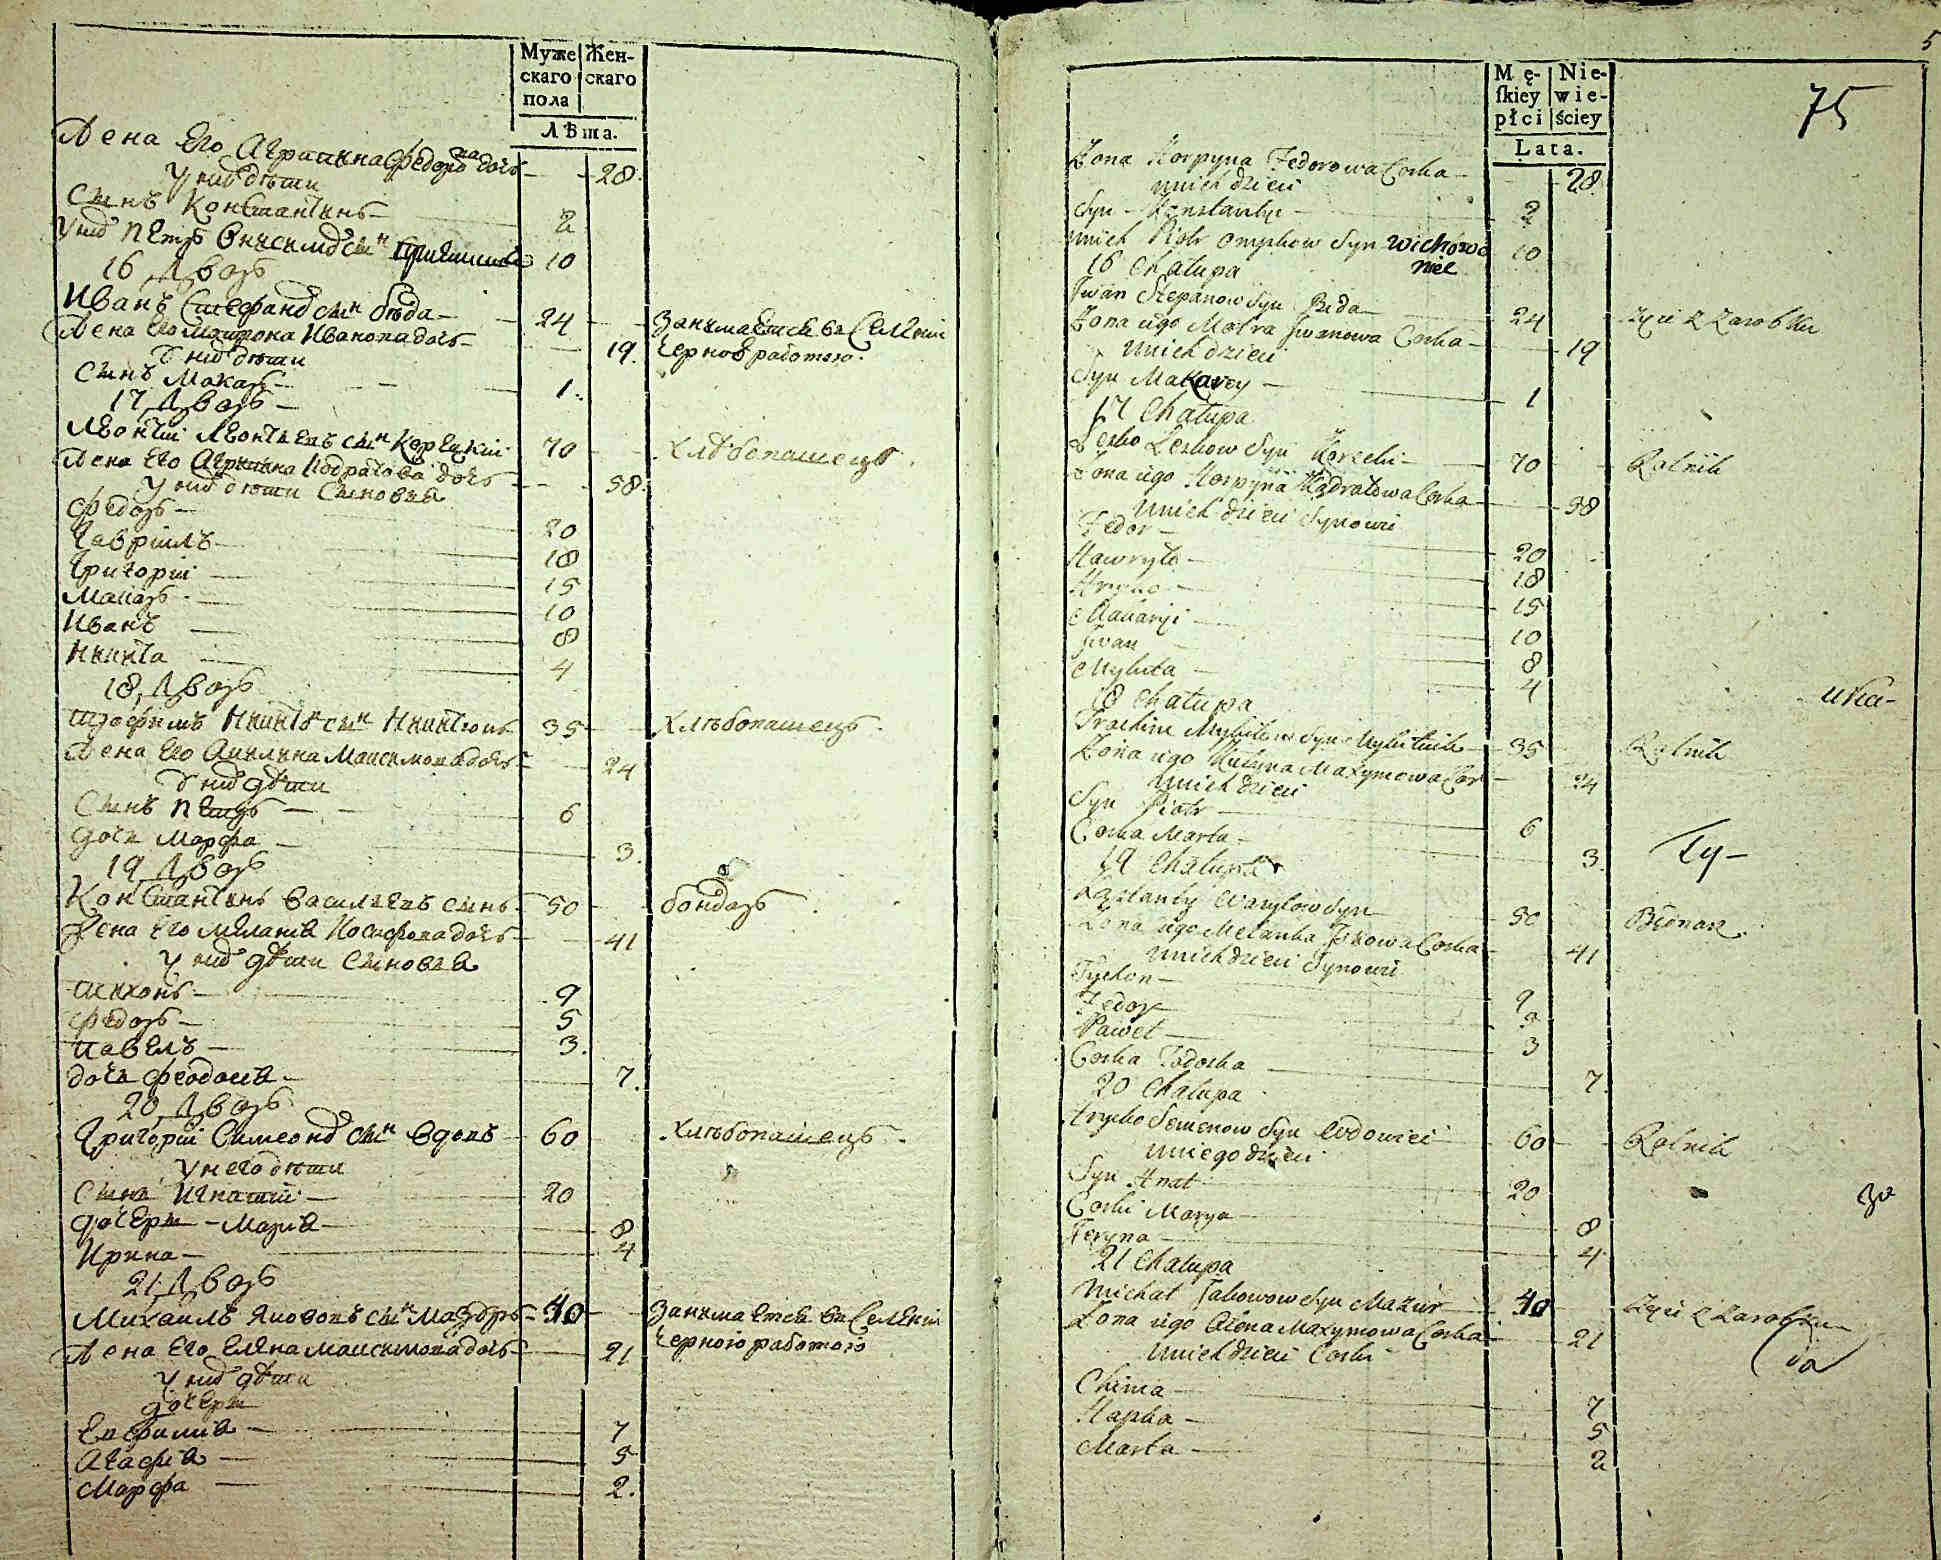 Муже
скаго
пола
Жен-
скаго
Лѣта.
Жена Его Агрипина Федорова дочь 28
У них дѣти
Сынъ Константинъ 2
У них Петръ сын Приемышъ 10
16 Дворъ
Иванъ Стефанов сын Бѣда 24 Занимается в Селении
Жена Его Матрона Иванова дочь 19 Черною работою.
У них дѣти
Сынъ Макаръ 1
17 Дворъ
Леонтий Леонтиевъ сын Корецкий 70 Хлѣбопашецъ
Жена Его Агрипина Кодратова дочь 58
У них дѣти Сыновья
Федоръ 20
Гавриилъ 18
Григорий 15
Макаръ 10
Иванъ 8
Никита 4
18 Дворъ
Трофимъ Никитин сын 35 Хлѣбопашецъ
Жена Его Акилина Максимова дочь 24
У них дѣти
Сынъ Петръ 6
дочь Марфа 3
19 Дворъ
Константинъ Василиевъ сынъ 50 бондаръ
Жена Его Мелания Иосифова дочь 41
У них дѣти Сыновья
Тихонъ 9
Федоръ 5
Павелъ 3
дочь Феодосия 7
20 Дворъ
Григорий Симеонов сын вдовъ 60 Хлѣбопашецъ
У него дѣти
Сынъ Игнатий 20
дочери Мария 8
Ирина 4
21 Дворъ
Михаилъ Якововъ сын Мазуръ 40 Занимается в Селении
Жена Его Елена Максимова дочь 21 Черною работою
У них дѣти
дочери
Евфимия 7
Агафия 5
Марфа 2
5
75
Mę-
ſkiey
płci
Nie-
wie-
ściey
Lata.
Zona Horpyna Fedorowa Corka 28
unich dzieci
Syn Konstantyn 2
unich Piotr Syn wichowa 10
niec
16 Chałupa
Jwan Stepanow Syn Bida 24 Zyie z Zarobku
Zona iego Motra Jwanowa Corka 19
unich dzieci
Syn Makarey 1
17 Chałupa
Lesko Leskow Syn Korecki 70 Rolnik
Zona iego Horpyna Kądratowa Corka 58
unich dzieci Synowie
Fedor 20
Hawryło 18
Hryćko 15
Makaryi 10
Jwan 8
Mykita 4
18 Chałupa
uka-
Trochim Mykitow Syn 35 Rolnik
Zona iego Kulyna Maxymowa Cor 24
unich dzieci
Syn Piotr 6
Corka Marta 3
19 Chałupa
Ty-
Kąstanty Wasylow Syn 50 Bednarz
Zona iego Melanka Corka 41
unich dzieci Synowie
Tychon 9
Fedor 5
Paweł 3
Corka Todoska 7
20 Chałupa
Hryćko Semenow Syn Wdowiec 60 Rolnik
uniego dzieci
Syn Hnat 20
Corki Marya 8
Jeryna 4
21 Chałupa
Michał Jakowow Syn Mazur 40 Zyie z Zarobku
Zona iego Olona Maxymowa Corka 21
unich dzieci Corki
Chima 7
Hapka 5
Marta 2